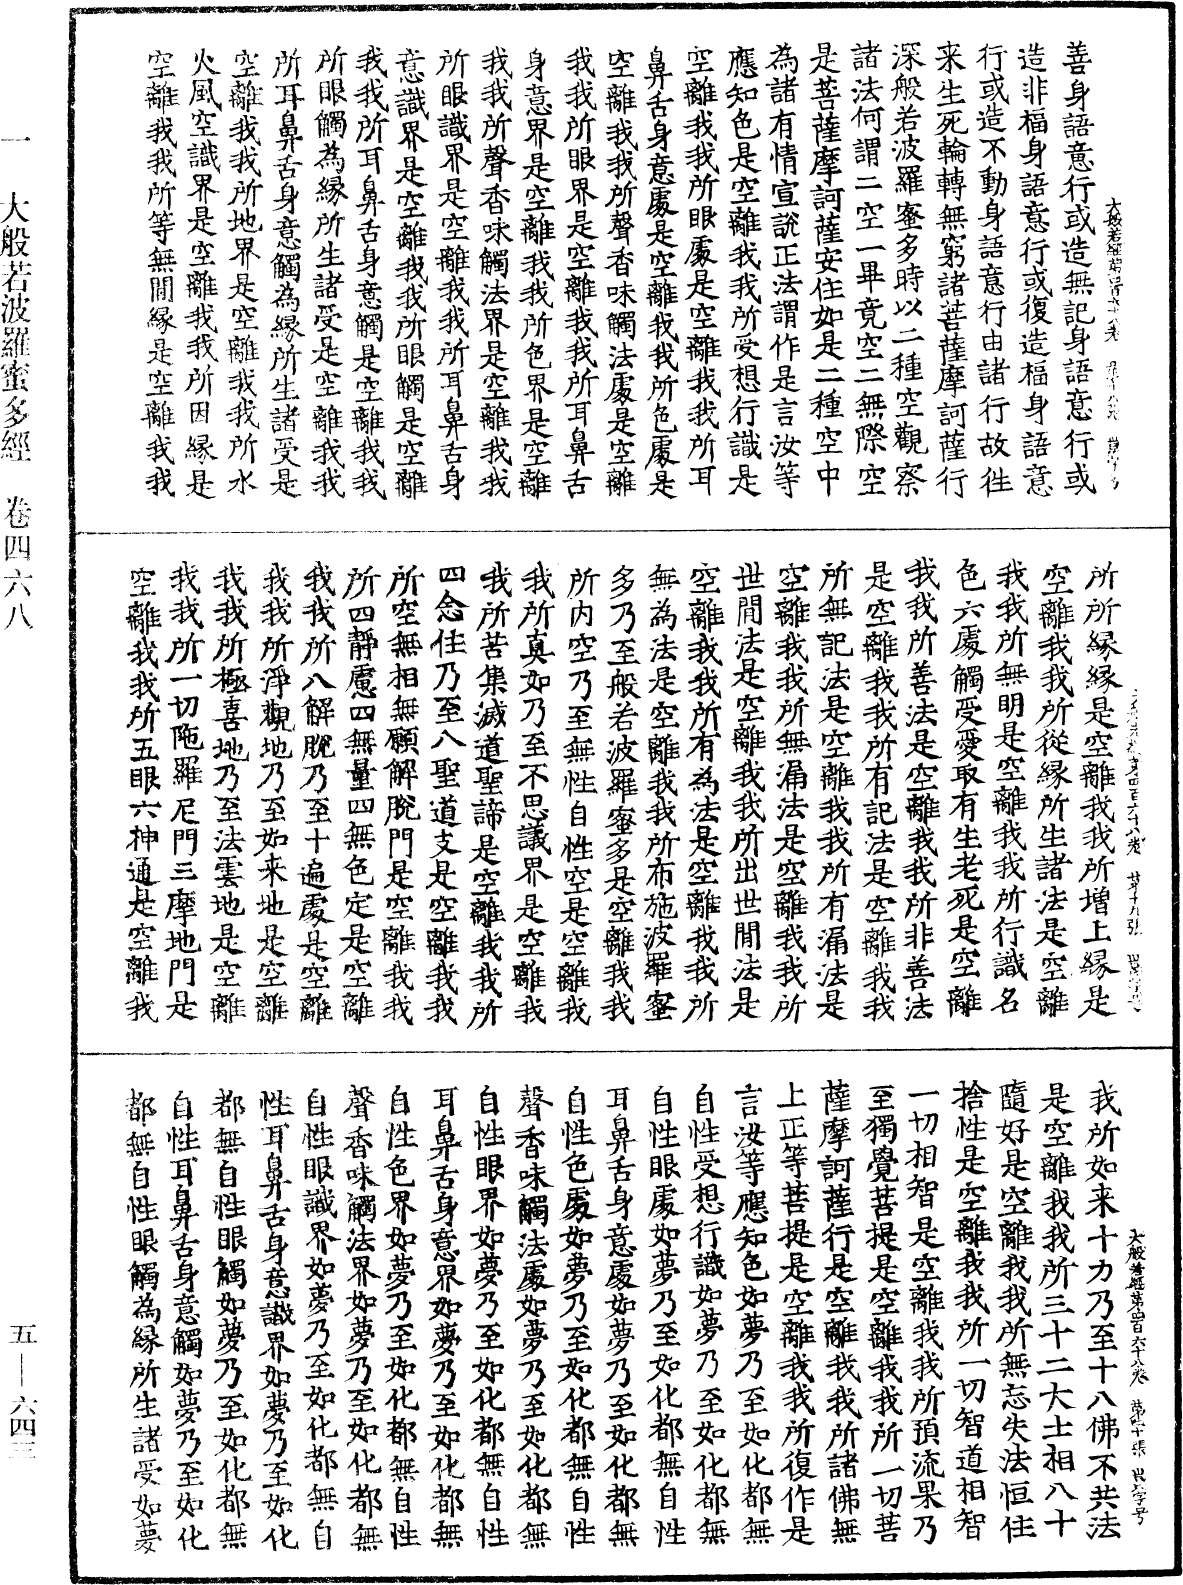 善身語意行或造無記身語意行或
造非福身語意行或復造福身語意
行或造不動身語意行由諸行故往
来生死輪轉無窮諸菩薩摩訶薩行
深般若波羅蜜多時以二種空觀察
諸法何謂二空一畢竟空二無際空
是菩薩摩訶薩安住如是二種空中
為諸有情宣說正法謂作是言汝等
應知色是空離我我所受想行識是
空離我我所眼處是空離我我所耳
鼻舌身意處是空離我我所色處是
空離我我所聲香味觸法處是空離
我我所眼界是空離我我所耳鼻舌
身意界是空離我我所色界是空離
我我所聲香味觸法界是空離我我
所眼識界是空離我我所耳鼻舌身
意識界是空離我我所眼觸是空離
我我所耳鼻舌身意觸是空離我我
所眼觸為緣所生諸受是空離我我
所耳鼻舌身意觸為緣所生諸受是
空離我我所地界是空離我我所水
火風空識界是空離我我所因緣是
空離我我所等無間緣是空離我我
所所緣緣是空離我我所增上緣是
空離我我所從緣所生諸法是空離
我我所無明是空離我我所行識名
色六處觸受愛取有生老死是空離
我我所善法是空離我我所非善法
是空離我我所有記法是空離我我
所無記法是空離我我所有漏法是
空離我我所無漏法是空離我我所
世間法是空離我我所出世間法是
空離我我所有為法是空離我我所
無為法是空離我我所布施波羅蜜
多乃至般若波羅蜜多是空離我我
所內空乃至無性自性空是空離我
我所真如乃至不思議界是空離我
我所苦集滅道聖諦是空離我我所
四念住乃至八聖道支是空離我我
所空無相無願解脫門是空離我我
所四靜慮四無量四無色定是空離
我我所八解脫乃至十遍處是空離
我我所淨觀地乃至如来地是空離
我我所極喜地乃至法雲地是空離
我我所一切陁羅尼門三摩地門是
空離我我所五眼六神通是空離我
我所如来十力乃至十八佛不共法
是空離我我所三十二大士相八十
隨好是空離我我所無忘失法恒住
捨性是空離我我所一切智道相智
一切相智是空離我我所預流果乃
至獨覺菩提是空離我我所一切菩
薩摩訶薩行是空離我我所諸佛無
上正等菩提是空離我我所復作是
言汝等應知色如夢乃至如化都無
自性受想行識如夢乃至如化都無
自性眼處如夢乃至如化都無自性
耳鼻舌身意處如夢乃至如化都無
自性色處如夢乃至如化都無自性
聲香味觸法處如夢乃至如化都無
自性眼界如夢乃至如化都無自性
耳鼻舌身意界如夢乃至如化都無
自性色界如夢乃至如化都無自性
聲香味觸法界如夢乃至如化都無
自性眼識界如夢乃至如化都無自
性耳鼻舌身意識界如夢乃至如化
都無自性眼觸如夢乃至如化都無
自性耳鼻舌身意觸如夢乃至如化
都無自性眼觸為緣所生諸受如夢
一 大般若波羅蜜多經 卷四六八
五—六四三